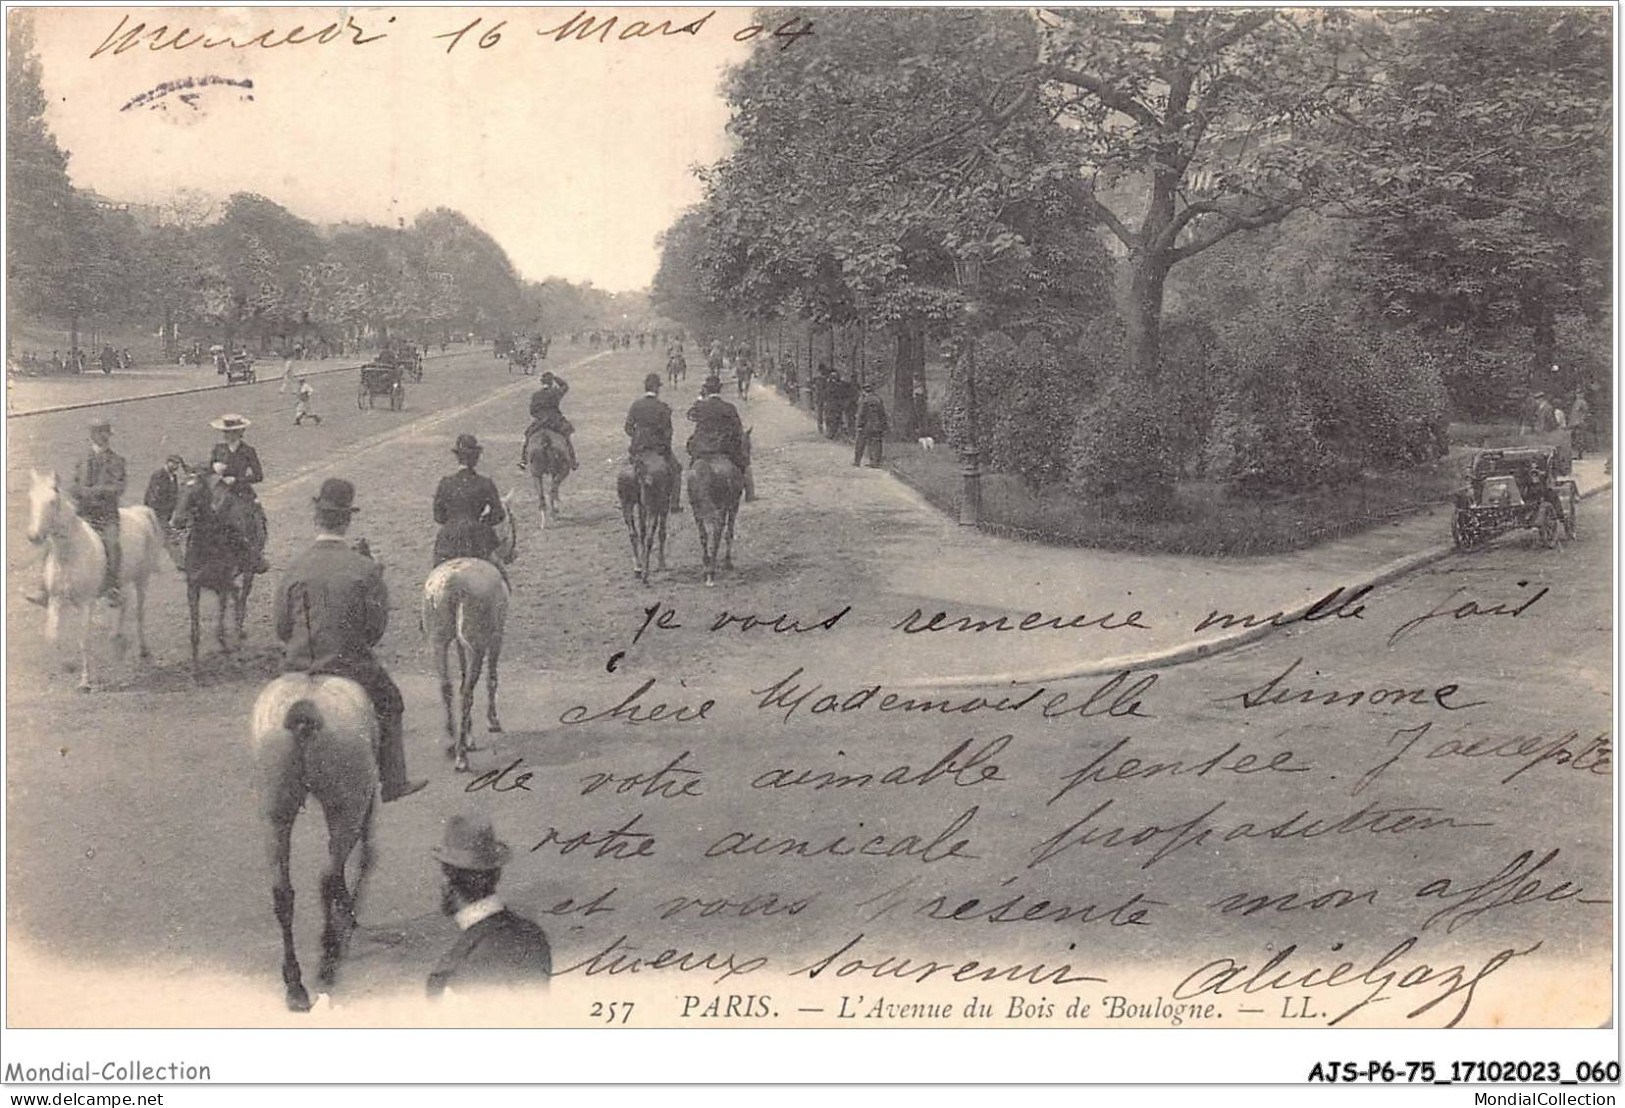 Mercredi 16 Mars 04
Je vous remercie mille fois
chère Mademoiselle Simone
de votre aimable pensée. J'accepte
votre amicale proposition
et vous présente mon affec-
tueux souvenir
257 PARIS. — L'Avenue du Bois de Boulogne. — LL.
Mondial-Collection
AJS-P6-75_17102023_060
delcampe.net
MondialCollection